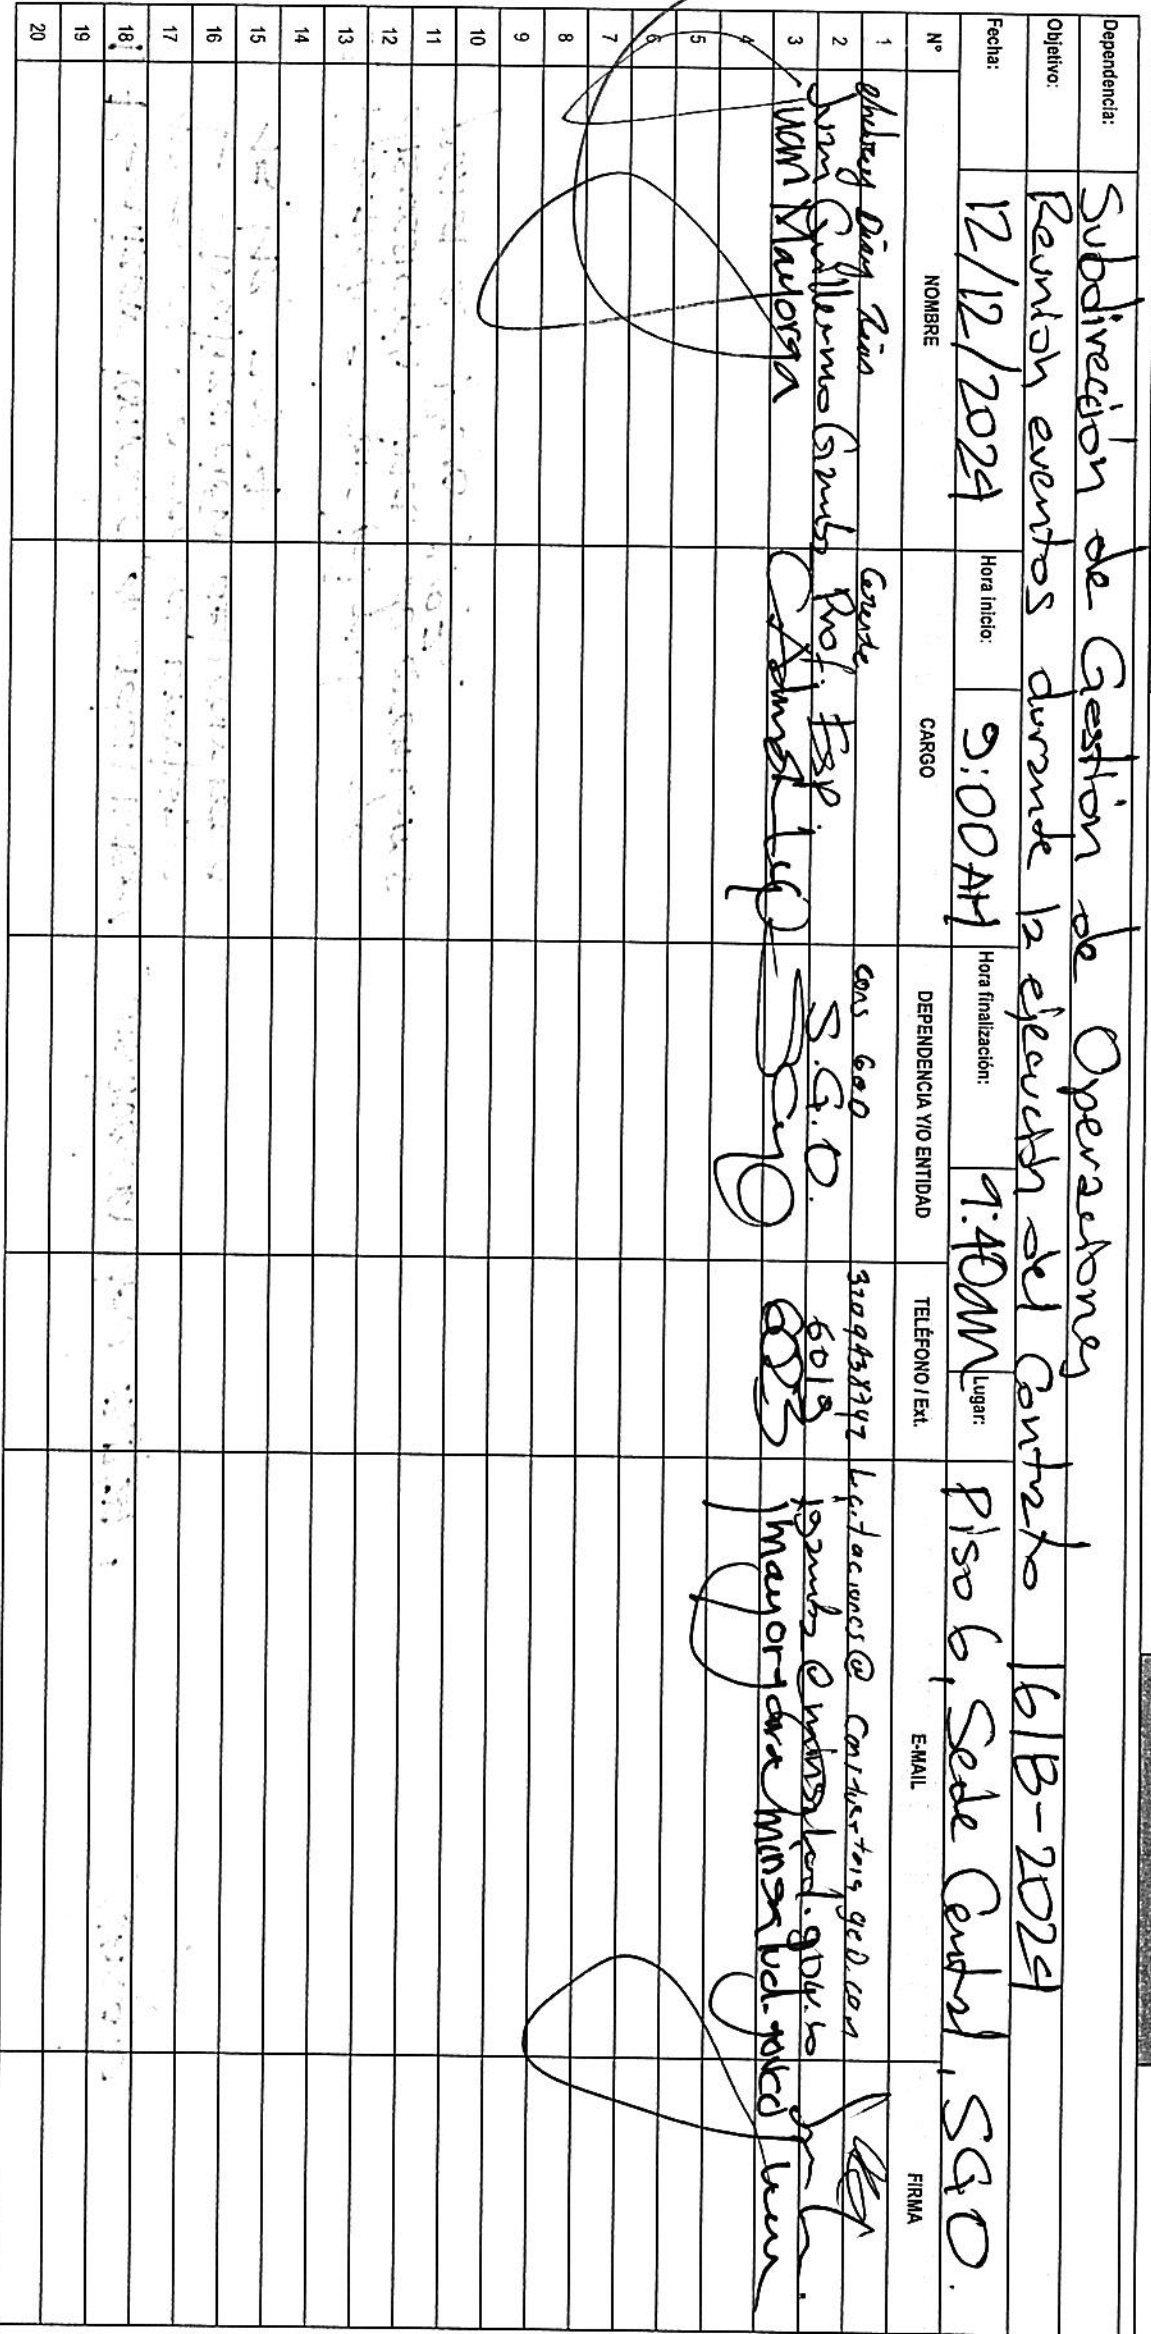 Dependencia: Subdirección de Gestión de Operaciones
Objetivo: Reunión eventos durante la ejecución del Contrato 161B-2024
Fecha: 12/12/2024 Hora inicio: 9:00 AM Hora finalización: 9:40am Lugar: Piso 6, Sede Central, SGO.
N° NOMBRE CARGO DEPENDENCIA Y/O ENTIDAD TELÉFONO / Ext. E-MAIL FIRMA
1 Díaz Ríos Gerente 3209438747
2 Juan Guillermo Gamba Prof. Esp. S.G.O. 6019 jgamba@minsalud.gov.co
3 Juan Mayorga
4
5
6
7
8
9
10
11
12
13
14
15
16
17
18
19
20